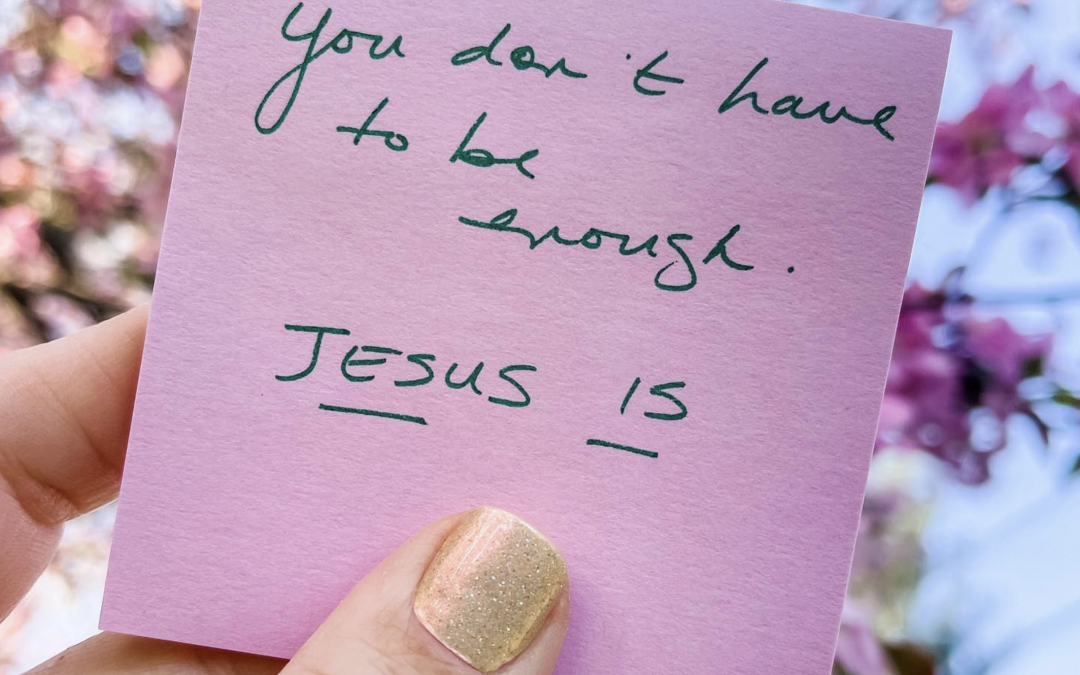 You don't have
to be
enough.
JESUS IS